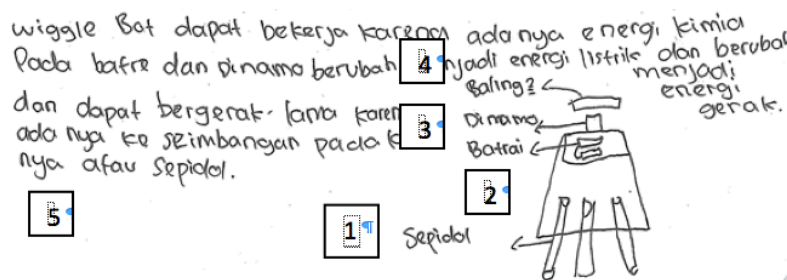 wiggle Bot dapat bekerja karena adanya energi kimia
Pada batre dan Dinamo berubah njadi energi listrik dan berubah
menjadi
energi
gerak.
dan dapat bergerak. lama karen
adanya ke seimbangan pada
nya atau Sepidol.
Baling2
Dinamo
Batrai
Sepidol
4
3
2
5
1